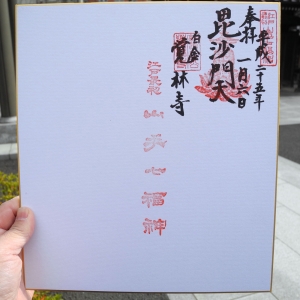 平成二十五年
一月六日
奉拝
毘沙門天
白金
覺林寺
江戸最初
山手七福神